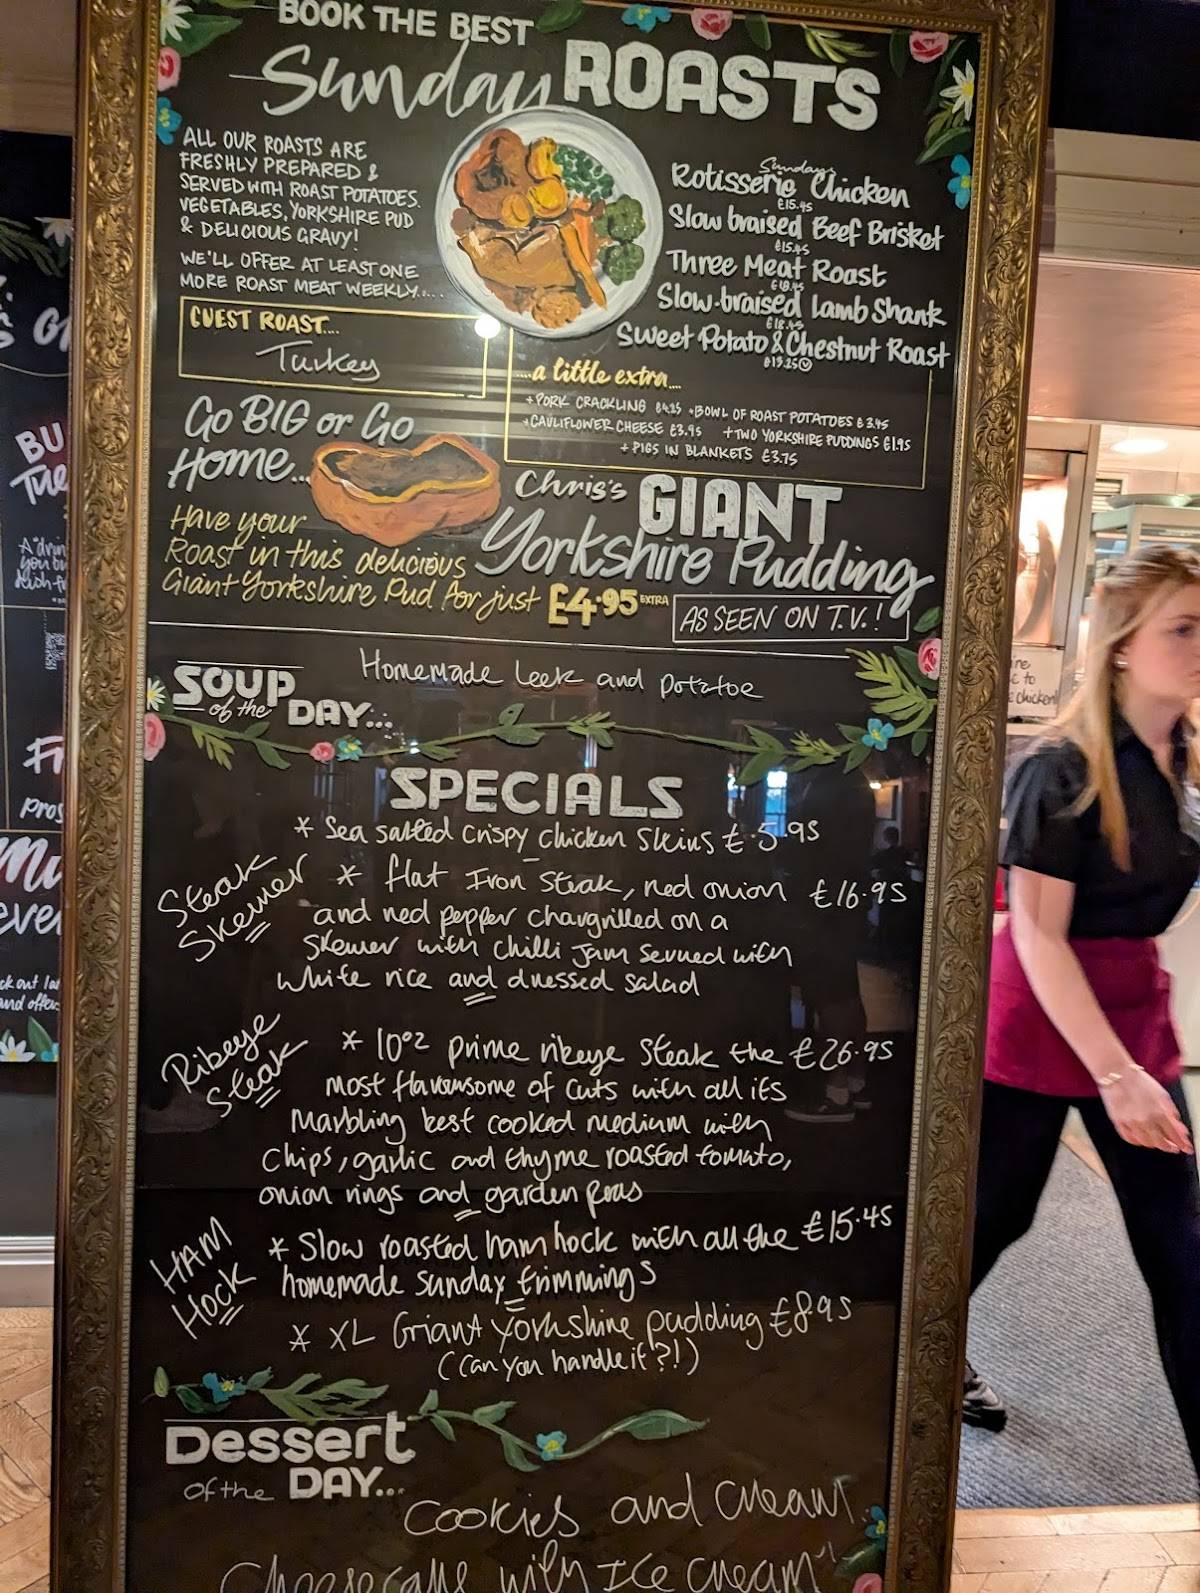 BOOK THE BEST
Sunday ROASTS
ALL OUR ROASTS ARE
FRESHLY PREPARED &
SERVED WITH ROAST POTATOES.
VEGETABLES, YORKSHIRE PUD
& DELICIOUS GRAVY!
WE'LL OFFER AT LEAST ONE
MORE ROAST MEAT WEEKLY....
GUEST ROAST....
Turkey
Sundays
Rotisserie Chicken
£15.45
Slow braised Beef Brisket
£15.45
Three Meat Roast
£18.45
Slow-braised Lamb Shank
£18.45
Sweet Potato & Chestnut Roast
£13.25 V
....a little extra....
+PORK CRACKLING £4.25 +BOWL OF ROAST POTATOES £3.45
+CAULIFLOWER CHEESE £3.95 +TWO YORKSHIRE PUDDINGS £1.95
+PIGS IN BLANKETS £3.75
Go BIG or Go
Home...
Have your
Roast in this delicious
Giant Yorkshire Pud for just £4.95 EXTRA
Chris's GIANT
Yorkshire Pudding
AS SEEN ON T.V.!
SOUP
of the DAY...
Homemade leek and potatoe
SPECIALS
* Sea salted crispy chicken skins £5.95
Steak
Skewer
* flat Iron steak, red onion £16.95
and red pepper chargrilled on a
skewer with chilli jam served with
white rice and dressed salad
Ribeye
Steak
* 10oz prime ribeye steak the £26.95
most flavoursome of cuts with all its
Marbling best cooked medium with
chips, garlic and thyme roasted tomato,
onion rings and garden peas
HAM
Hock
* Slow roasted ham hock with all the £15.45
homemade sunday trimmings
* XL Giant Yorkshire pudding £8.95
(Can you handle it?!)
Dessert
of the DAY...
Cookies and cream
Cheesecake with Ice cream